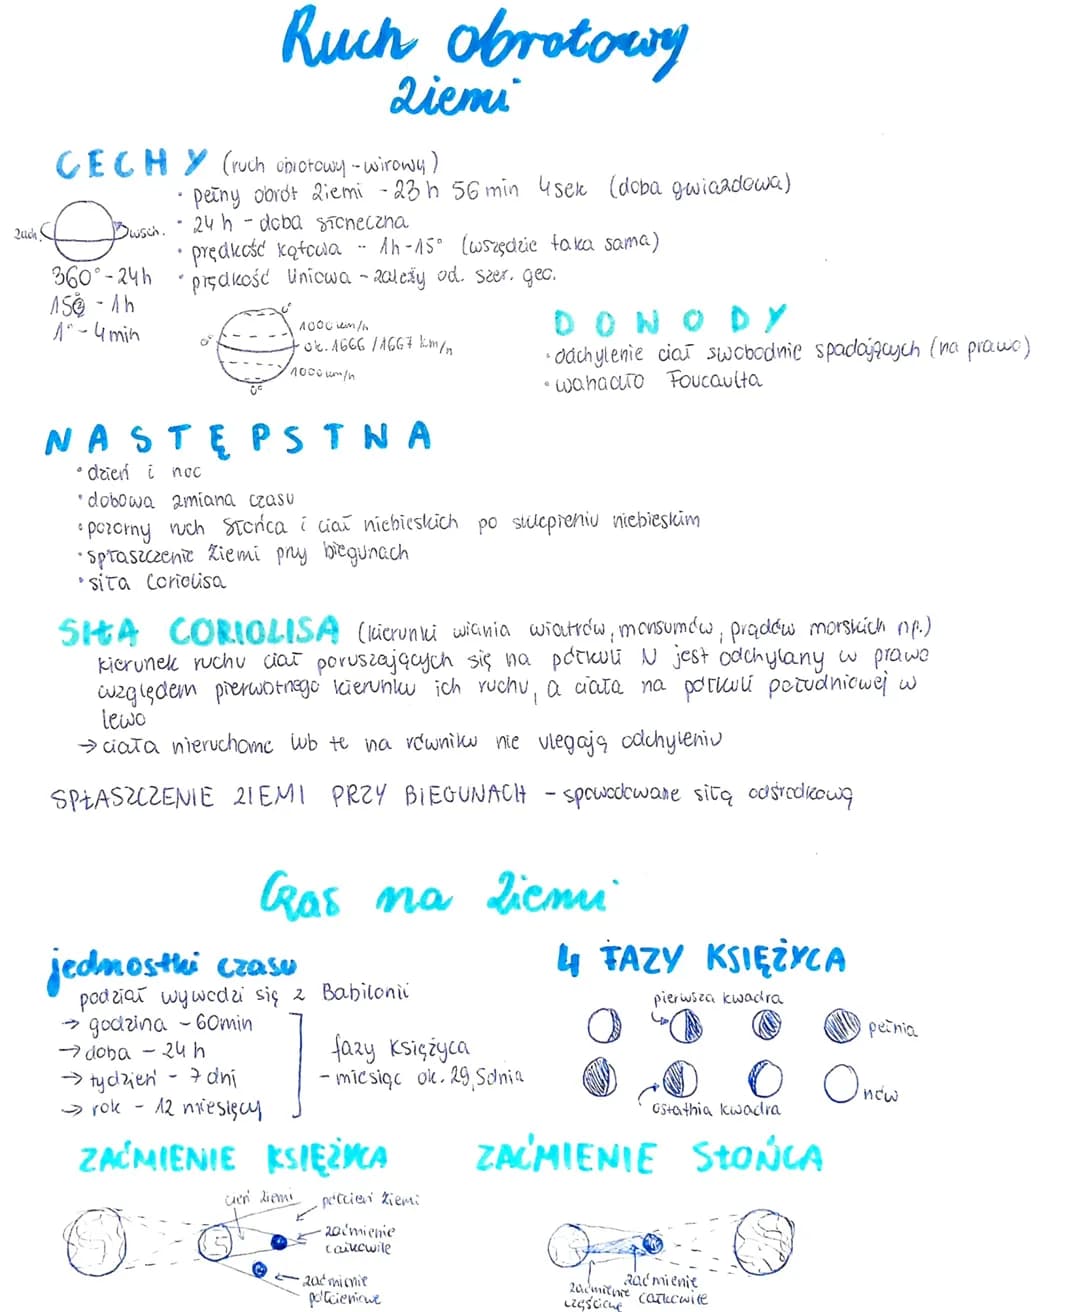 Ruch obrotowy
Ziemi
CECHY (ruch obrotowy - wirowy)
• pełny obrót Ziemi - 23 h 56 min 4 sek (doba gwiazdowa)
• 24 h - doba słoneczna
• prędkość kątowa - 1h - 15° (wszędzie taka sama)
• prędkość liniowa - zależy od. szer. geo.
zach. wsch.
360° - 24h
15° - 1h
1° - 4 min
0°
1000 km/h
0° ok. 1666 / 1667 km/h
1000 km/h
0°
DOWODY
• odchylenie ciał swobodnie spadających (na prawo)
• wahadło Foucaulta
NASTĘPSTWA
• dzień i noc
• dobowa zmiana czasu
• pozorny ruch Słońca i ciał niebieskich po sklepieniu niebieskim
• spłaszczenie Ziemi przy biegunach
• siła Coriolisa
SIŁA CORIOLISA (kierunki wiania wiatrów, monsumów, prądów morskich np.)
kierunek ruchu ciał poruszających się na półkuli N jest odchylany w prawo
względem pierwotnego kierunku ich ruchu, a ciała na półkuli południowej w
lewo
→ ciała nieruchome lub te na równiku nie ulegają odchyleniu
SPŁASZCZENIE ZIEMI PRZY BIEGUNACH - spowodowane siłą odśrodkową
Czas na Ziemi
jednostki czasu
podział wywodzi się z Babilonii
→ godzina - 60min
→ doba - 24 h
→ tydzień - 7 dni
→ rok - 12 miesięcy
fazy Księżyca
- miesiąc ok. 29,5 dnia
4 FAZY KSIĘŻYCA
pierwsza kwadra
pełnia
ostatnia kwadra
nów
ZAĆMIENIE KSIĘŻYCA
cień Ziemi
półcień Ziemi
zaćmienie
całkowite
zaćmienie
półcieniowe
ZAĆMIENIE SŁOŃCA
zaćmienie
częściowe
zaćmienie
całkowite